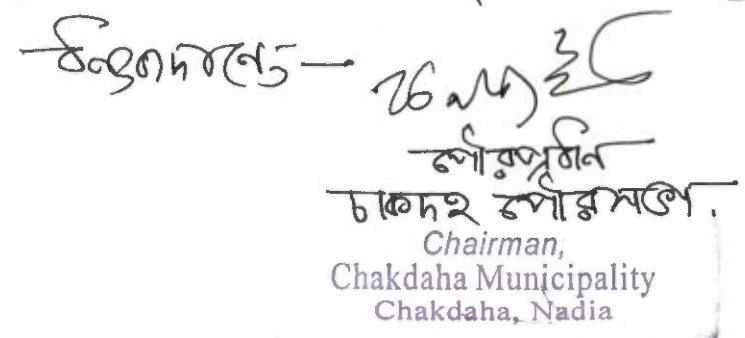 ধন্যবাদান্তে —
পৌরপ্রধান
চাকদহ পৌরসভা.
Chairman,
Chakdaha Municipality
Chakdaha, Nadia